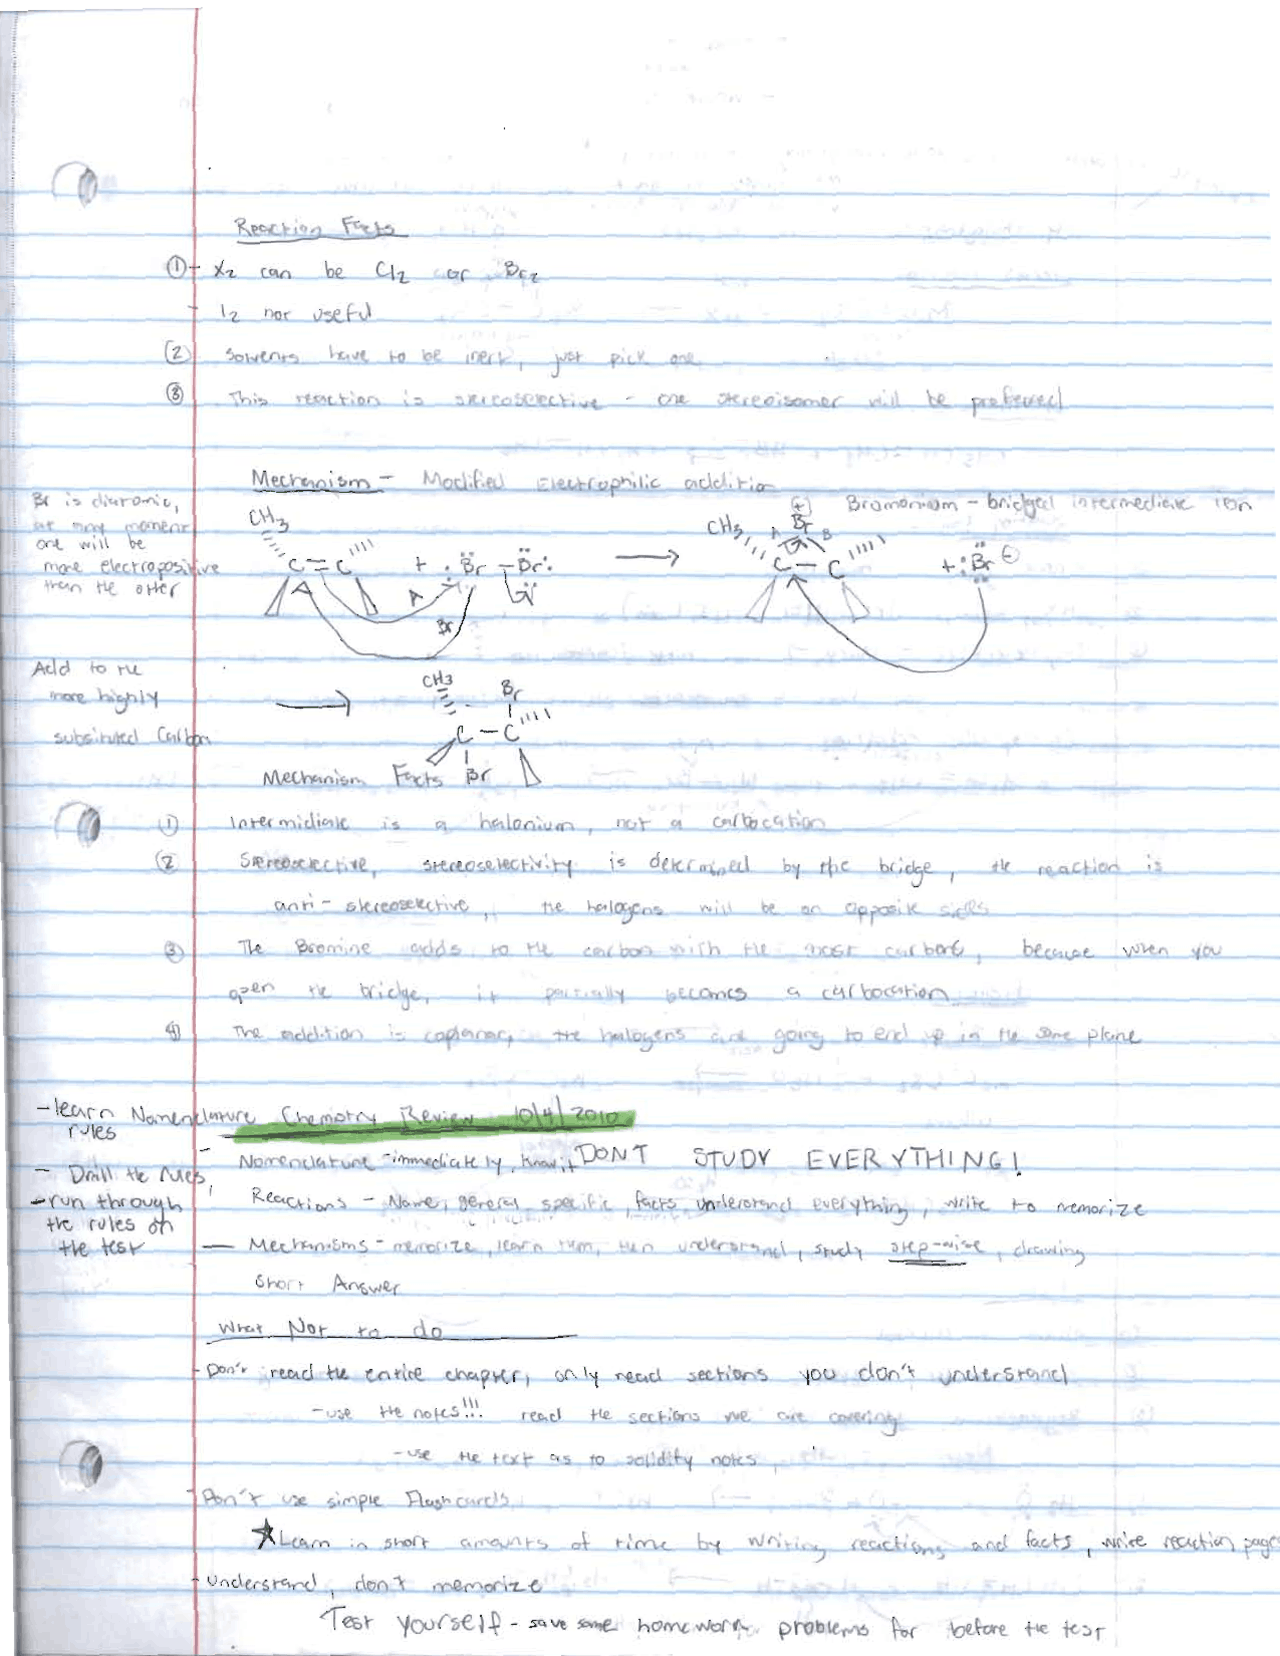 Reaction Facts
① - X2 can be Cl2 or Br2
- I2 not useful
② Solvents have to be inert, just pick one
③ This reaction is stereoselective - one stereoisomer will be preferred
Mechanism - Modified Electrophilic addition
Br is diatomic,
at any moment
one will be
more electropositive
than the other
Bromonium - bridged intermediate ion
CH3
C = C + Br - Br
A
Br
CH3 A Br B
C - C + Br
Add to the
more highly
substituted Carbon
CH3 Br
C - C
Br
Mechanism Facts
① Intermidiate is a halonium, not a carbocation
② Stereoselective, stereoselectivity is determined by the bridge, the reaction is
anti-stereoselective, the halogens will be on opposite sides
③ The Bromine adds to the carbon with the most carbons, because when you
open the bridge, it partially becomes a carbocation
④ The addition is coplanar, the halogens are going to end up in the same plane
Chemistry Review 10/4/2010
- learn Nomenclature
rules
- Drill the rules,
- run through
the rules on
the test
- Nomenclature - immediately, know it DONT STUDY EVERYTHING!
Reactions - Name, general specific, facts, understand everything, write to memorize
- Mechanisms - memorize, learn them, then understand, study step-wise, drawing
Short Answer
What Not to do
- Don't read the entire chapter, only read sections you don't understand
- use the notes!!! read the sections we are covering
- use the text as to solidify notes
- Don't use simple Flashcards
★ Learn in short amounts of time by writing reactions and facts, write reaction pages
- Understand, don't memorize
Test yourself - save some homework problems for before the test